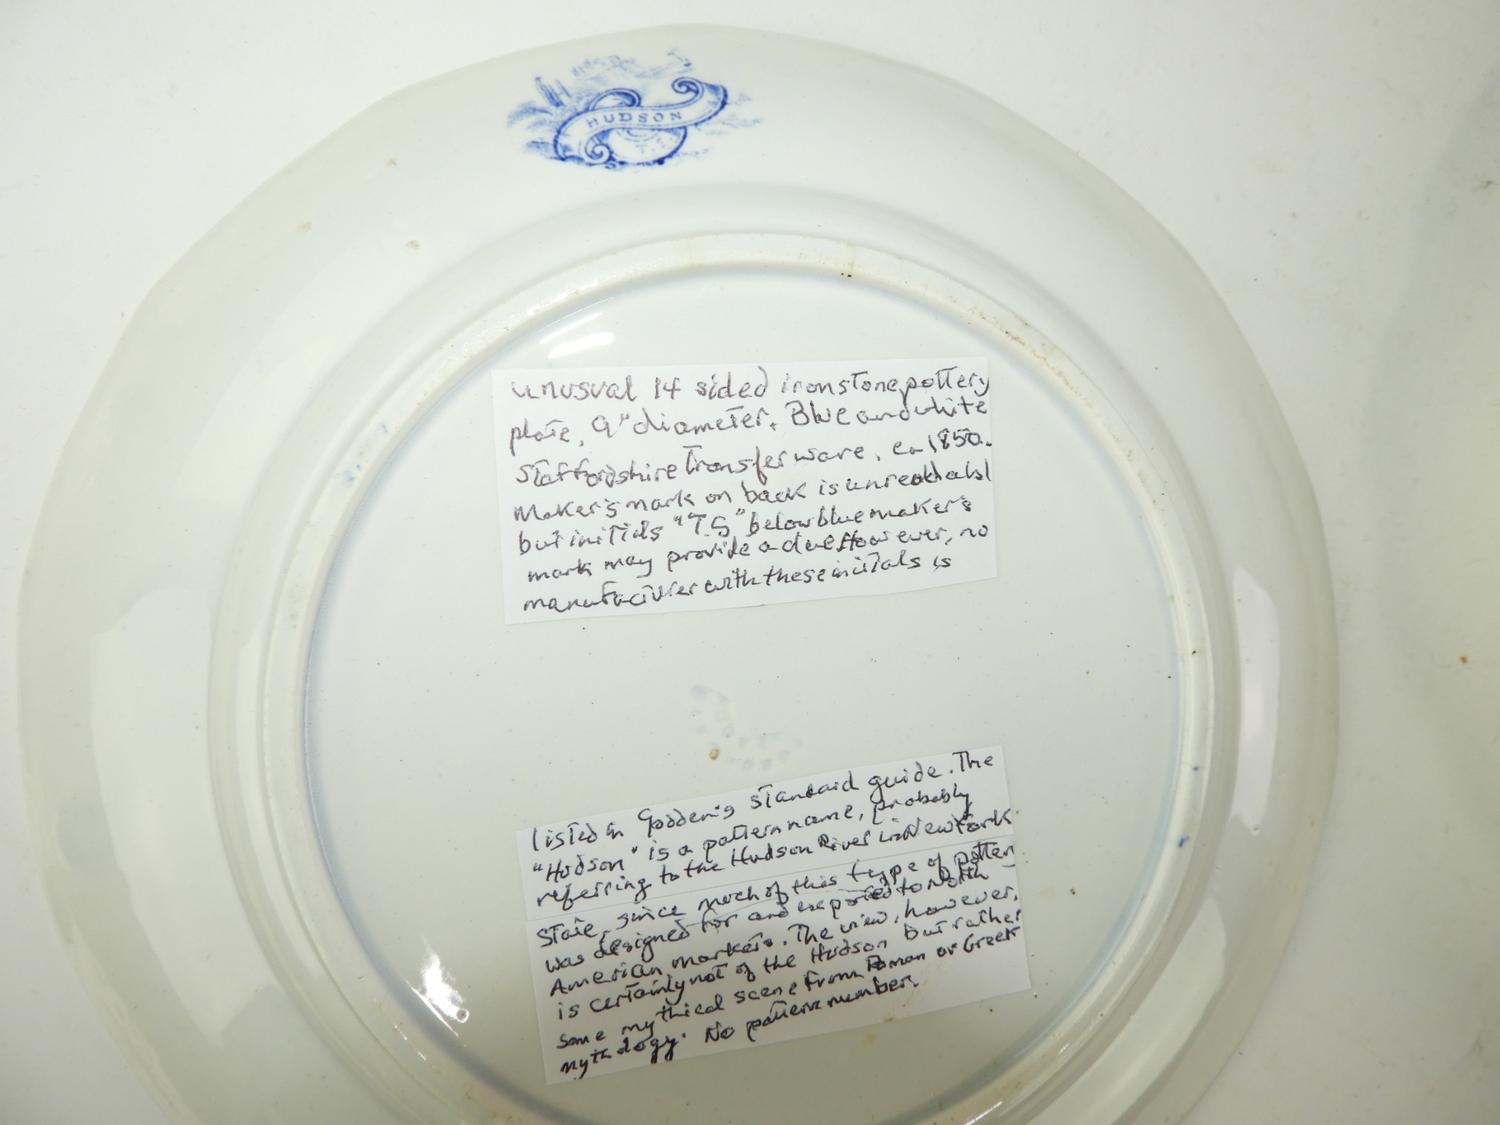 HUDSON
T.S
unusual 14 sided ironstone pottery
plate, 9" diameter. Blue and white
Staffordshire Transferware, ca 1850.
Maker's mark on back is unreadabl
but initials "T.S" below blue maker's
mark may provide a clue. However, no
manufacturer with these initials is
listed in Godden's standard guide. The
"Hudson" is a pattern name, probably
referring to the Hudson River in New York
State, since much of this type of pottery
was designed for and exported to North
American markets. The view, however,
is certainly not of the Hudson but rather
some mythical scene from Roman or Greek
mythology. No pattern number.